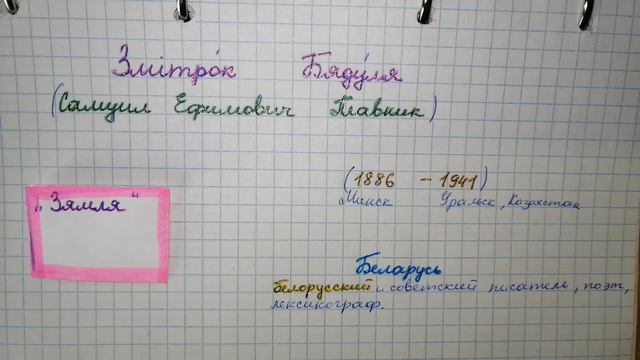 Змітро́к Бяду́ля
(Самуил Ефимович Плавник)
(1886 – 1941)
Минск Уральск, Казахстан
„Зямля“
Беларусь
белорусский и советский писатель, поэт,
лексикограф.